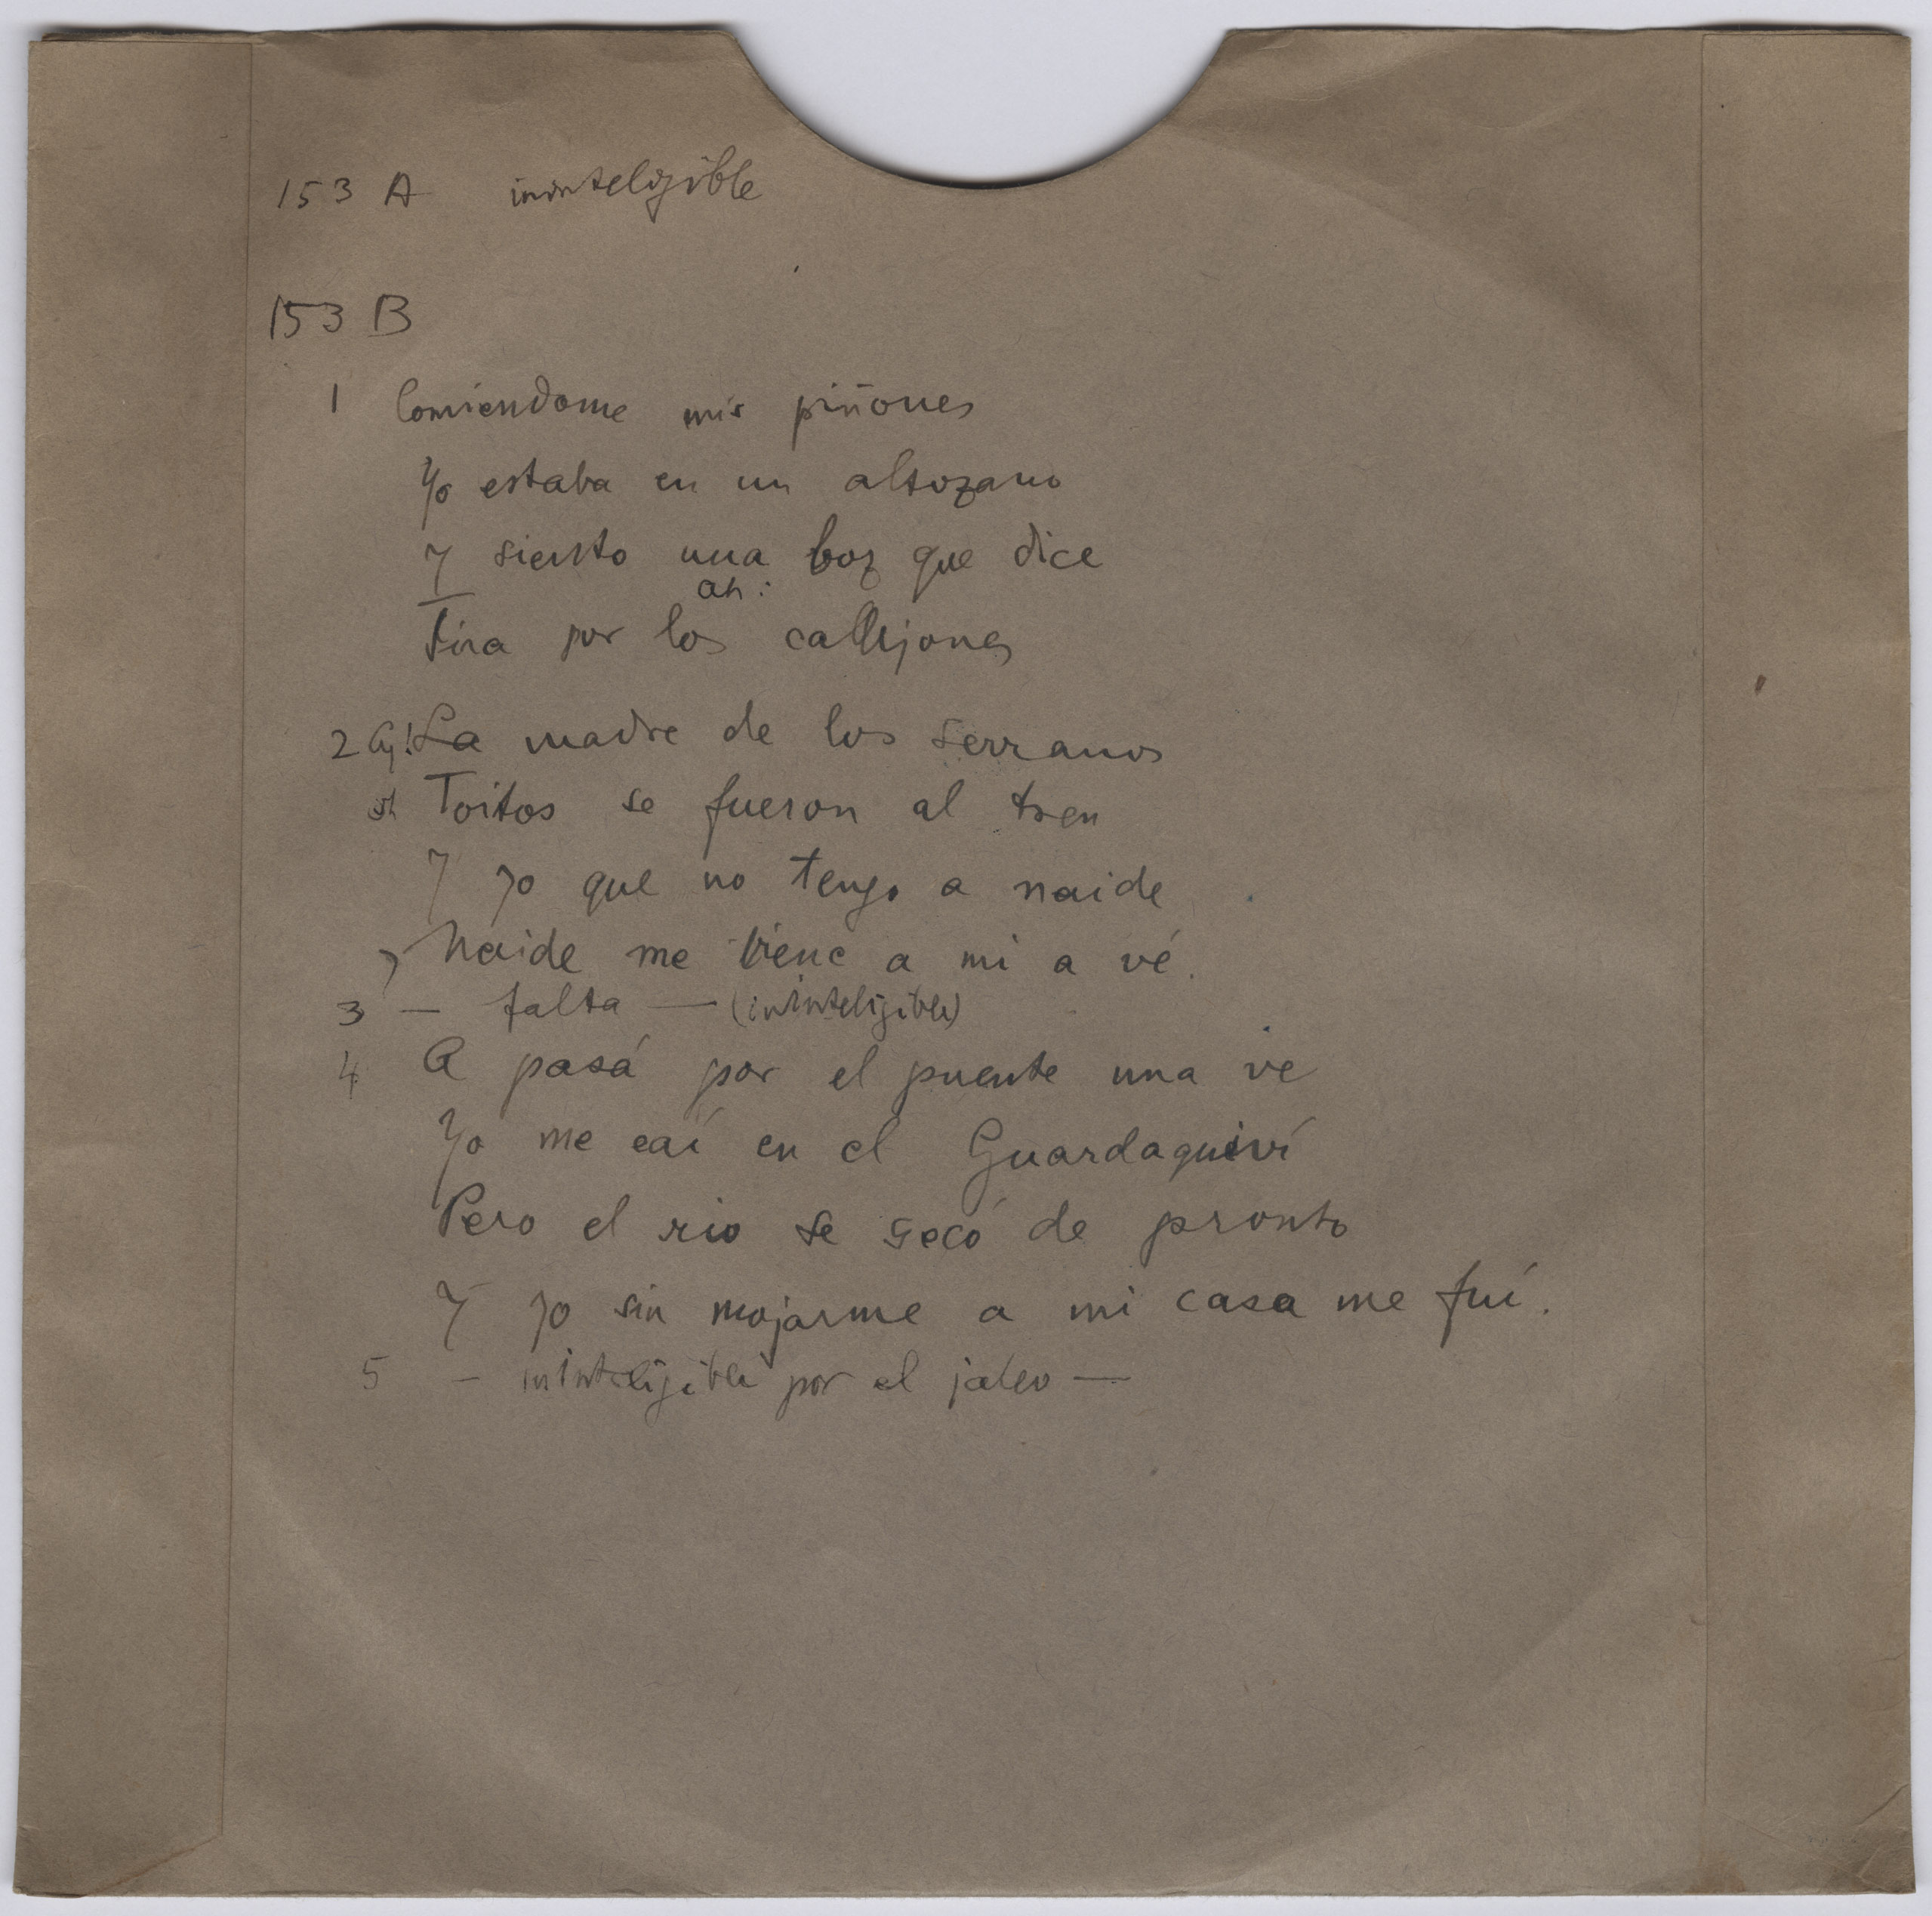 153 A ininteligible
153 B
1 Comiendome mis piñones
Yo estaba en un altozano
Y siento una boz que dice
ah:
Tira por los callejones
2 Ay! La madre de los serranos
Toitos se fueron al tren
Y yo que no tengo a naide
y Naide me viene a mi a vé.
3 — falta — (ininteligible)
4 A pasá por el puente una ve
Yo me caí en el Guardaquiví
Pero el rio se secó de pronto
Y yo sin mojarme a mi casa me fuí.
5 — ininteligible por el jaleo —